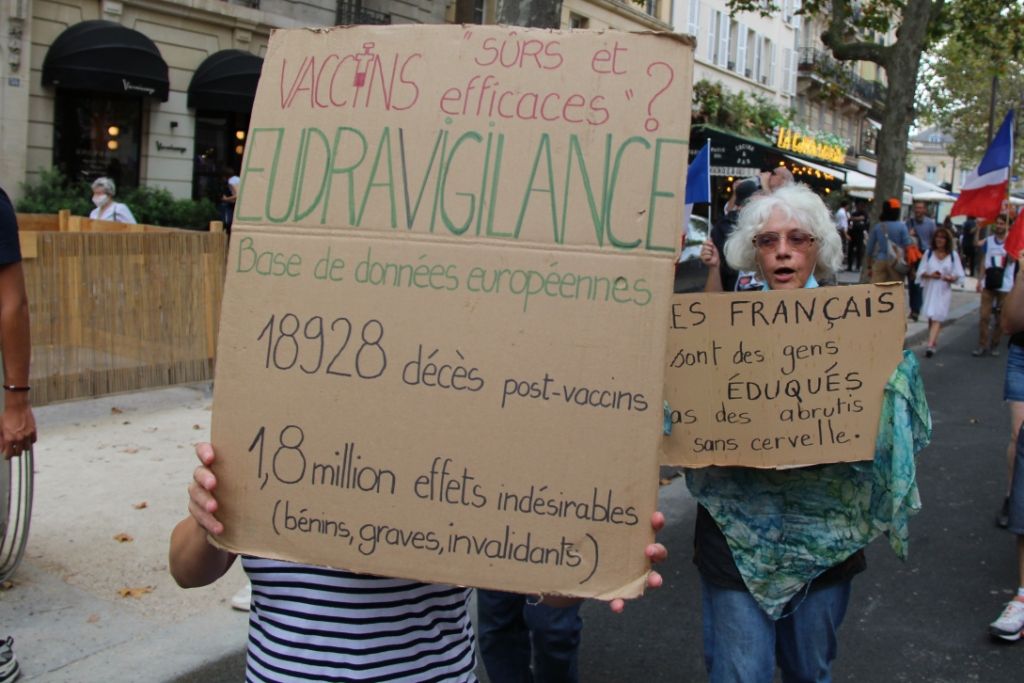 VACCINS "SÛRS et
efficaces" ?
EUDRAVIGILANCE
Base de données européennes
18928 décès post-vaccins
1,8 million effets indésirables
(bénins, graves, invalidants)
ES FRANÇAIS
sont des gens
ÉDUQUÉS
as des abrutis
sans cervelle.